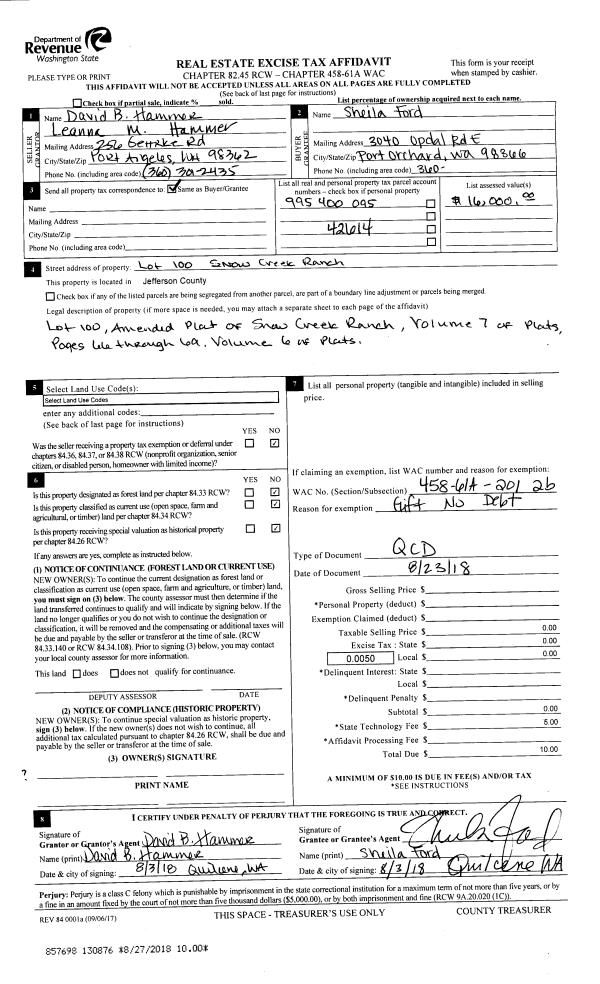 Department of
Revenue
Washington State
PLEASE TYPE OR PRINT
REAL ESTATE EXCISE TAX AFFIDAVIT
CHAPTER 82.45 RCW – CHAPTER 458-61A WAC
This form is your receipt
when stamped by cashier.
THIS AFFIDAVIT WILL NOT BE ACCEPTED UNLESS ALL AREAS ON ALL PAGES ARE FULLY COMPLETED
(See back of last page for instructions)
Check box if partial sale, indicate % sold.
List percentage of ownership acquired next to each name.
1
SELLER
GRANTOR
Name David B. Hammer
Leanna M. Hammer
Mailing Address 256 Gehrke Rd
City/State/Zip Port Angeles, WA 98362
Phone No. (including area code) (360) 301-2435
2
BUYER
GRANTEE
Name Sheila Ford
Mailing Address 3040 Opdal Rd E
City/State/Zip Port Orchard, WA 98366
Phone No. (including area code) 360-
3
Send all property tax correspondence to: Same as Buyer/Grantee
Name
Mailing Address
City/State/Zip
Phone No. (including area code)
List all real and personal property tax parcel account
numbers – check box if personal property
995 400 095
42614
List assessed value(s)
$ 16,000.00
4
Street address of property: Lot 100 Snow Creek Ranch
This property is located in Jefferson County
Check box if any of the listed parcels are being segregated from another parcel, are part of a boundary line adjustment or parcels being merged.
Legal description of property (if more space is needed, you may attach a separate sheet to each page of the affidavit)
Lot 100, Amended Plat of Snow Creek Ranch, Volume 7 of Plats,
Pages 66 through 69. Volume 6 of Plats.
5
Select Land Use Code(s):
Select Land Use Codes
enter any additional codes:
(See back of last page for instructions)
YES NO
Was the seller receiving a property tax exemption or deferral under
chapters 84.36, 84.37, or 84.38 RCW (nonprofit organization, senior
citizen, or disabled person, homeowner with limited income)?
6
YES NO
Is this property designated as forest land per chapter 84.33 RCW?
Is this property classified as current use (open space, farm and
agricultural, or timber) land per chapter 84.34 RCW?
Is this property receiving special valuation as historical property
per chapter 84.26 RCW?
If any answers are yes, complete as instructed below.
(1) NOTICE OF CONTINUANCE (FOREST LAND OR CURRENT USE)
NEW OWNER(S): To continue the current designation as forest land or
classification as current use (open space, farm and agriculture, or timber) land,
you must sign on (3) below. The county assessor must then determine if the
land transferred continues to qualify and will indicate by signing below. If the
land no longer qualifies or you do not wish to continue the designation or
classification, it will be removed and the compensating or additional taxes will
be due and payable by the seller or transferor at the time of sale. (RCW
84.33.140 or RCW 84.34.108). Prior to signing (3) below, you may contact
your local county assessor for more information.
This land does does not qualify for continuance.
DEPUTY ASSESSOR DATE
(2) NOTICE OF COMPLIANCE (HISTORIC PROPERTY)
NEW OWNER(S): To continue special valuation as historic property,
sign (3) below. If the new owner(s) does not wish to continue, all
additional tax calculated pursuant to chapter 84.26 RCW, shall be due and
payable by the seller or transferor at the time of sale.
(3) OWNER(S) SIGNATURE
?
PRINT NAME
7
List all personal property (tangible and intangible) included in selling
price.
If claiming an exemption, list WAC number and reason for exemption:
WAC No. (Section/Subsection) 458-61A-201 2b
Reason for exemption Gift No Debt
Type of Document QCD
Date of Document 8/23/18
Gross Selling Price $
*Personal Property (deduct) $
Exemption Claimed (deduct) $
Taxable Selling Price $ 0.00
Excise Tax : State $ 0.00
0.0050 Local $ 0.00
*Delinquent Interest: State $
Local $
*Delinquent Penalty $
Subtotal $ 0.00
*State Technology Fee $ 5.00
*Affidavit Processing Fee $
Total Due $ 10.00
A MINIMUM OF $10.00 IS DUE IN FEE(S) AND/OR TAX
*SEE INSTRUCTIONS
8
I CERTIFY UNDER PENALTY OF PERJURY THAT THE FOREGOING IS TRUE AND CORRECT.
Signature of
Grantor or Grantor's Agent David B. Hammer
Name (print) David B. Hammer
Date & city of signing: 8/3/18 Quilcene, WA
Signature of
Grantee or Grantee's Agent Sheila Ford
Name (print) Sheila Ford
Date & city of signing: 8/3/18 Quilcene WA
Perjury: Perjury is a class C felony which is punishable by imprisonment in the state correctional institution for a maximum term of not more than five years, or by
a fine in an amount fixed by the court of not more than five thousand dollars ($5,000.00), or by both imprisonment and fine (RCW 9A.20.020 (1C)).
REV 84 0001a (09/06/17)
THIS SPACE - TREASURER'S USE ONLY
COUNTY TREASURER
857698 130876 *8/27/2018 10.00*